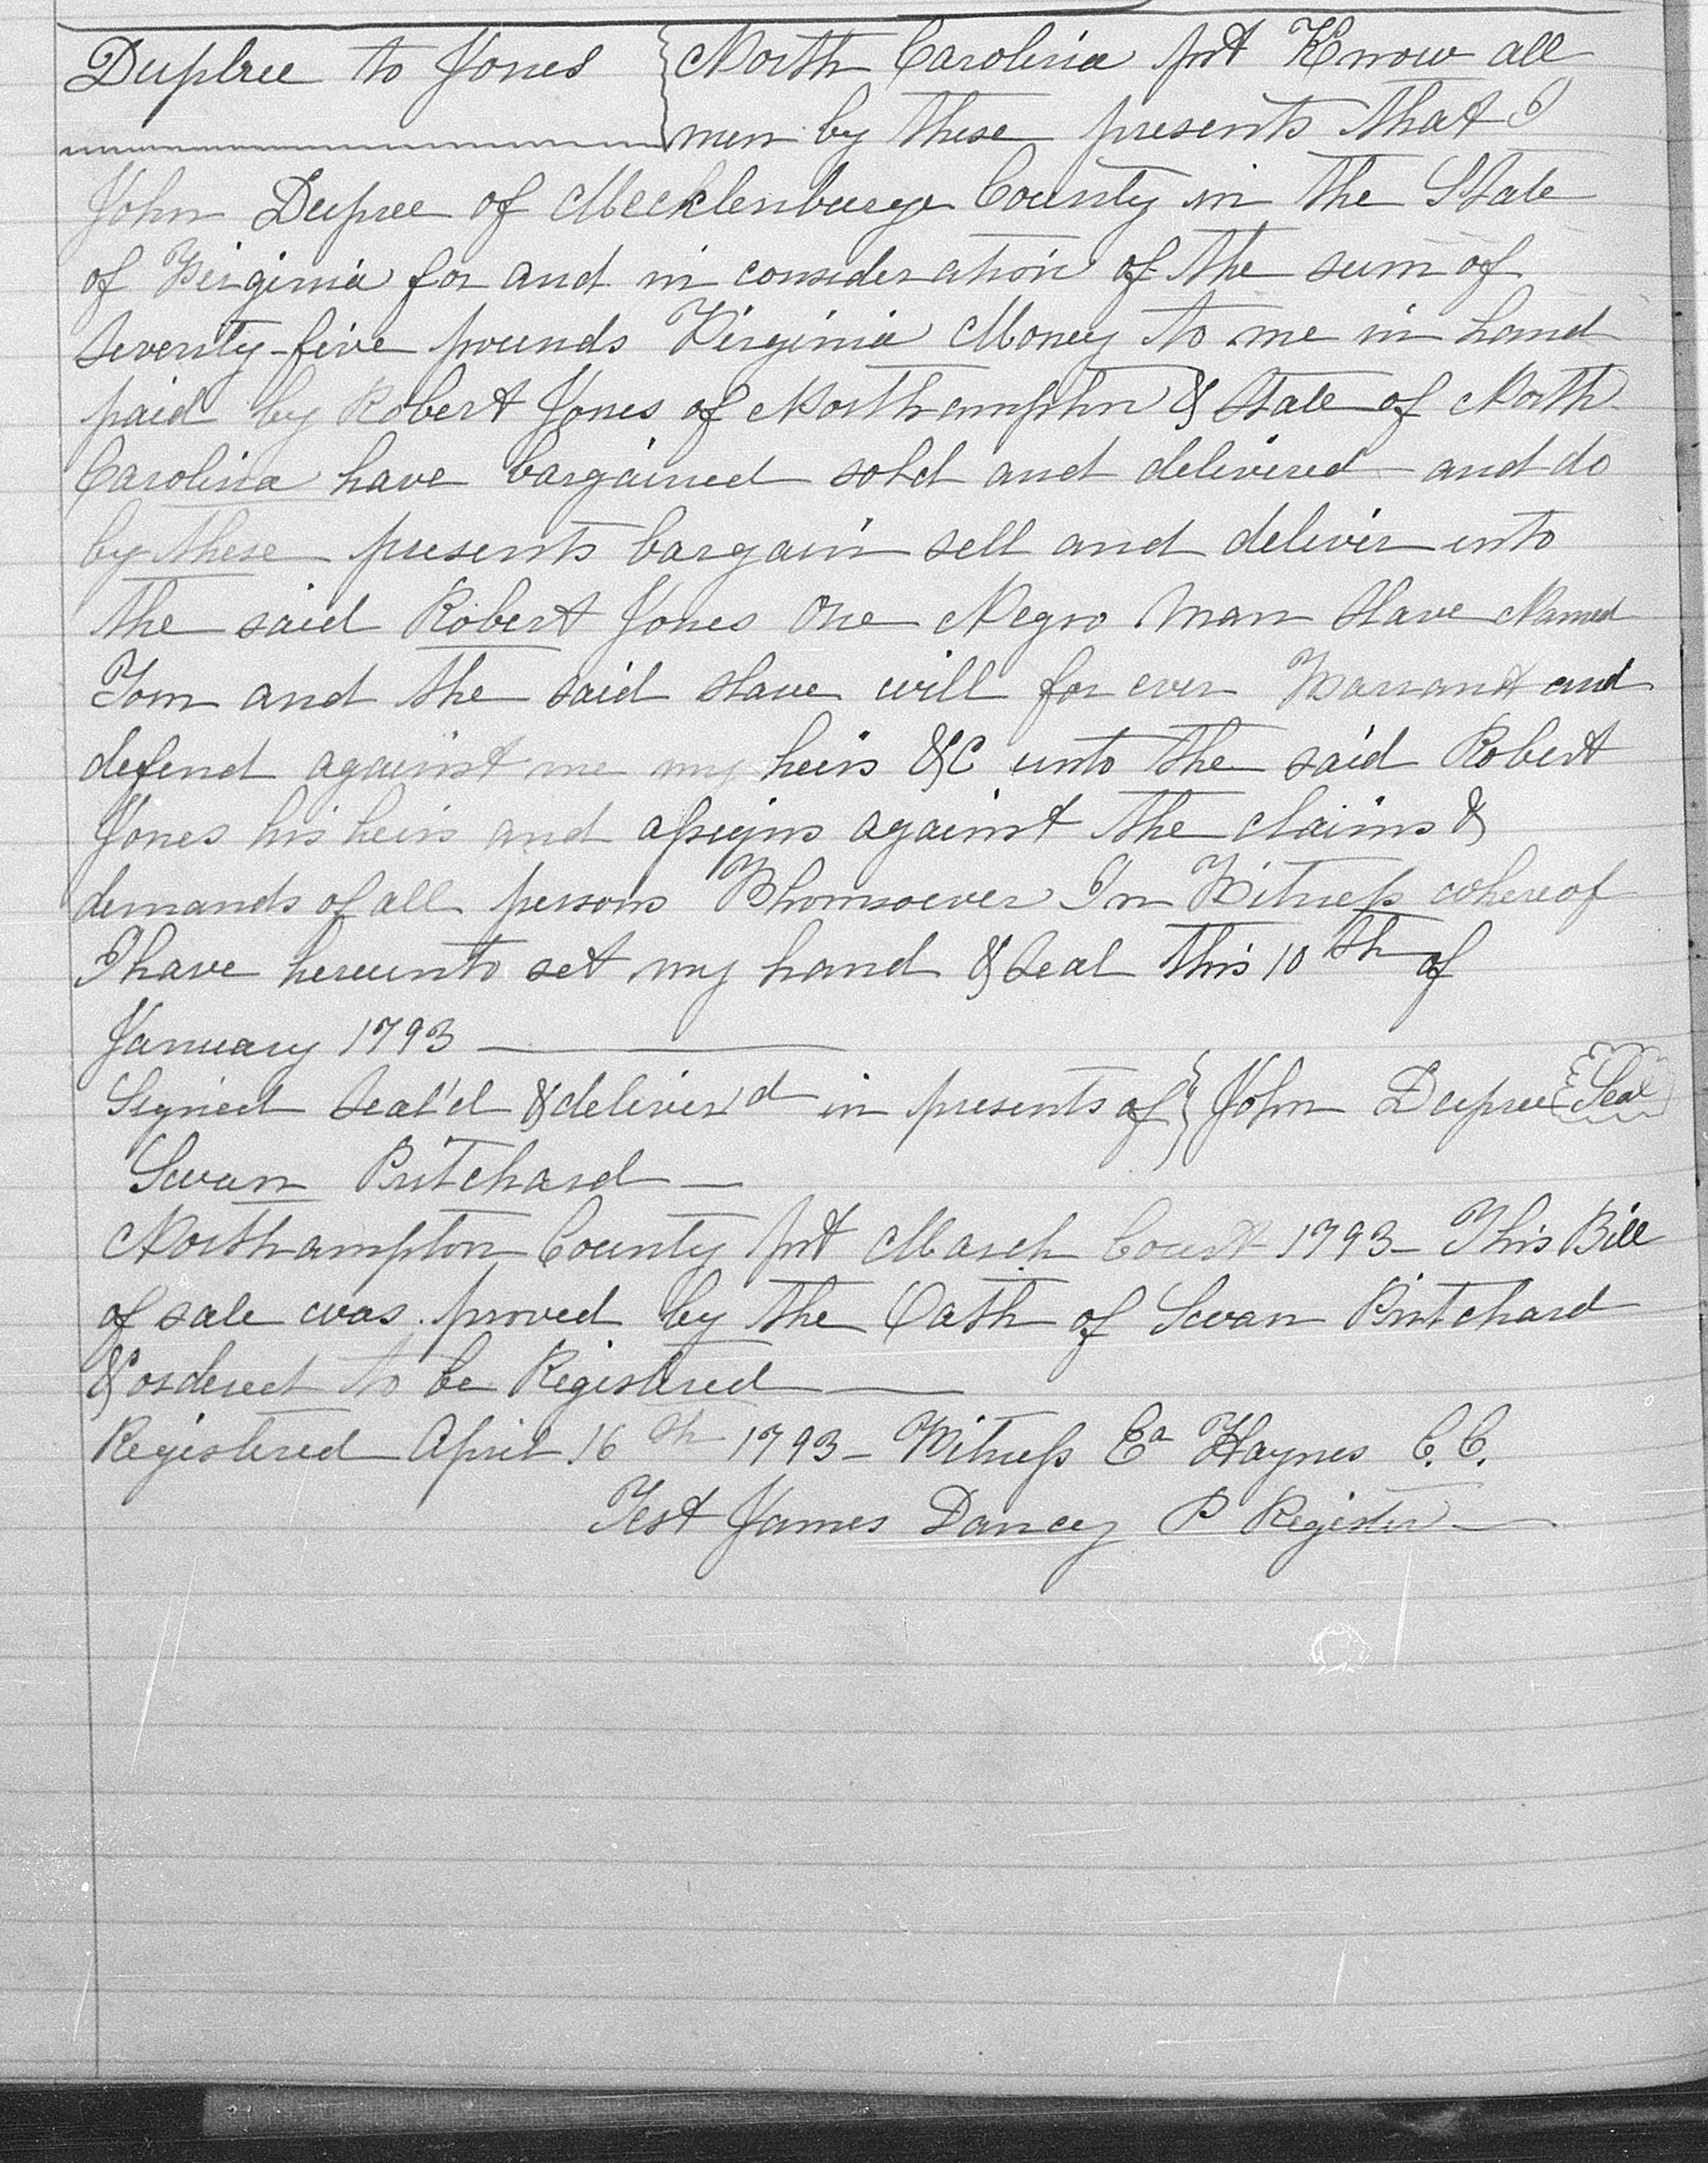 Duplree to Jones { North Carolina pst Know all
men by these presents that I
John Dupree of Mecklenburge County in the State
of Virginia for and in consideration of the sum of
Seventy-five pounds Virginia Money to me in hand
paid by Robert Jones of Northampton & State of North
Carolina have bargained sold and delivered and do
by these presents bargain sell and deliver unto
the said Robert Jones One Negro Man Slave Named
Tom and the said slave will for ever Warrant and
defend against me my heirs &C unto the said Robert
Jones his heirs and assigns against the claims &
demands of all persons Whomsoever In Witness whereof
I have hereunto set my hand & Seal this 10th of
January 1793
Signed Seal'd & deliver'd in presents of } John Dupree Seal
Swan Pritchard
Northampton County pst March Court 1793 - This Bill
of sale was proved by the Oath of Swan Pritchard
& ordered to be Registered
Registered April 16th 1793 - Witness Ea Haynes C.C.
Test James Dancey P Register